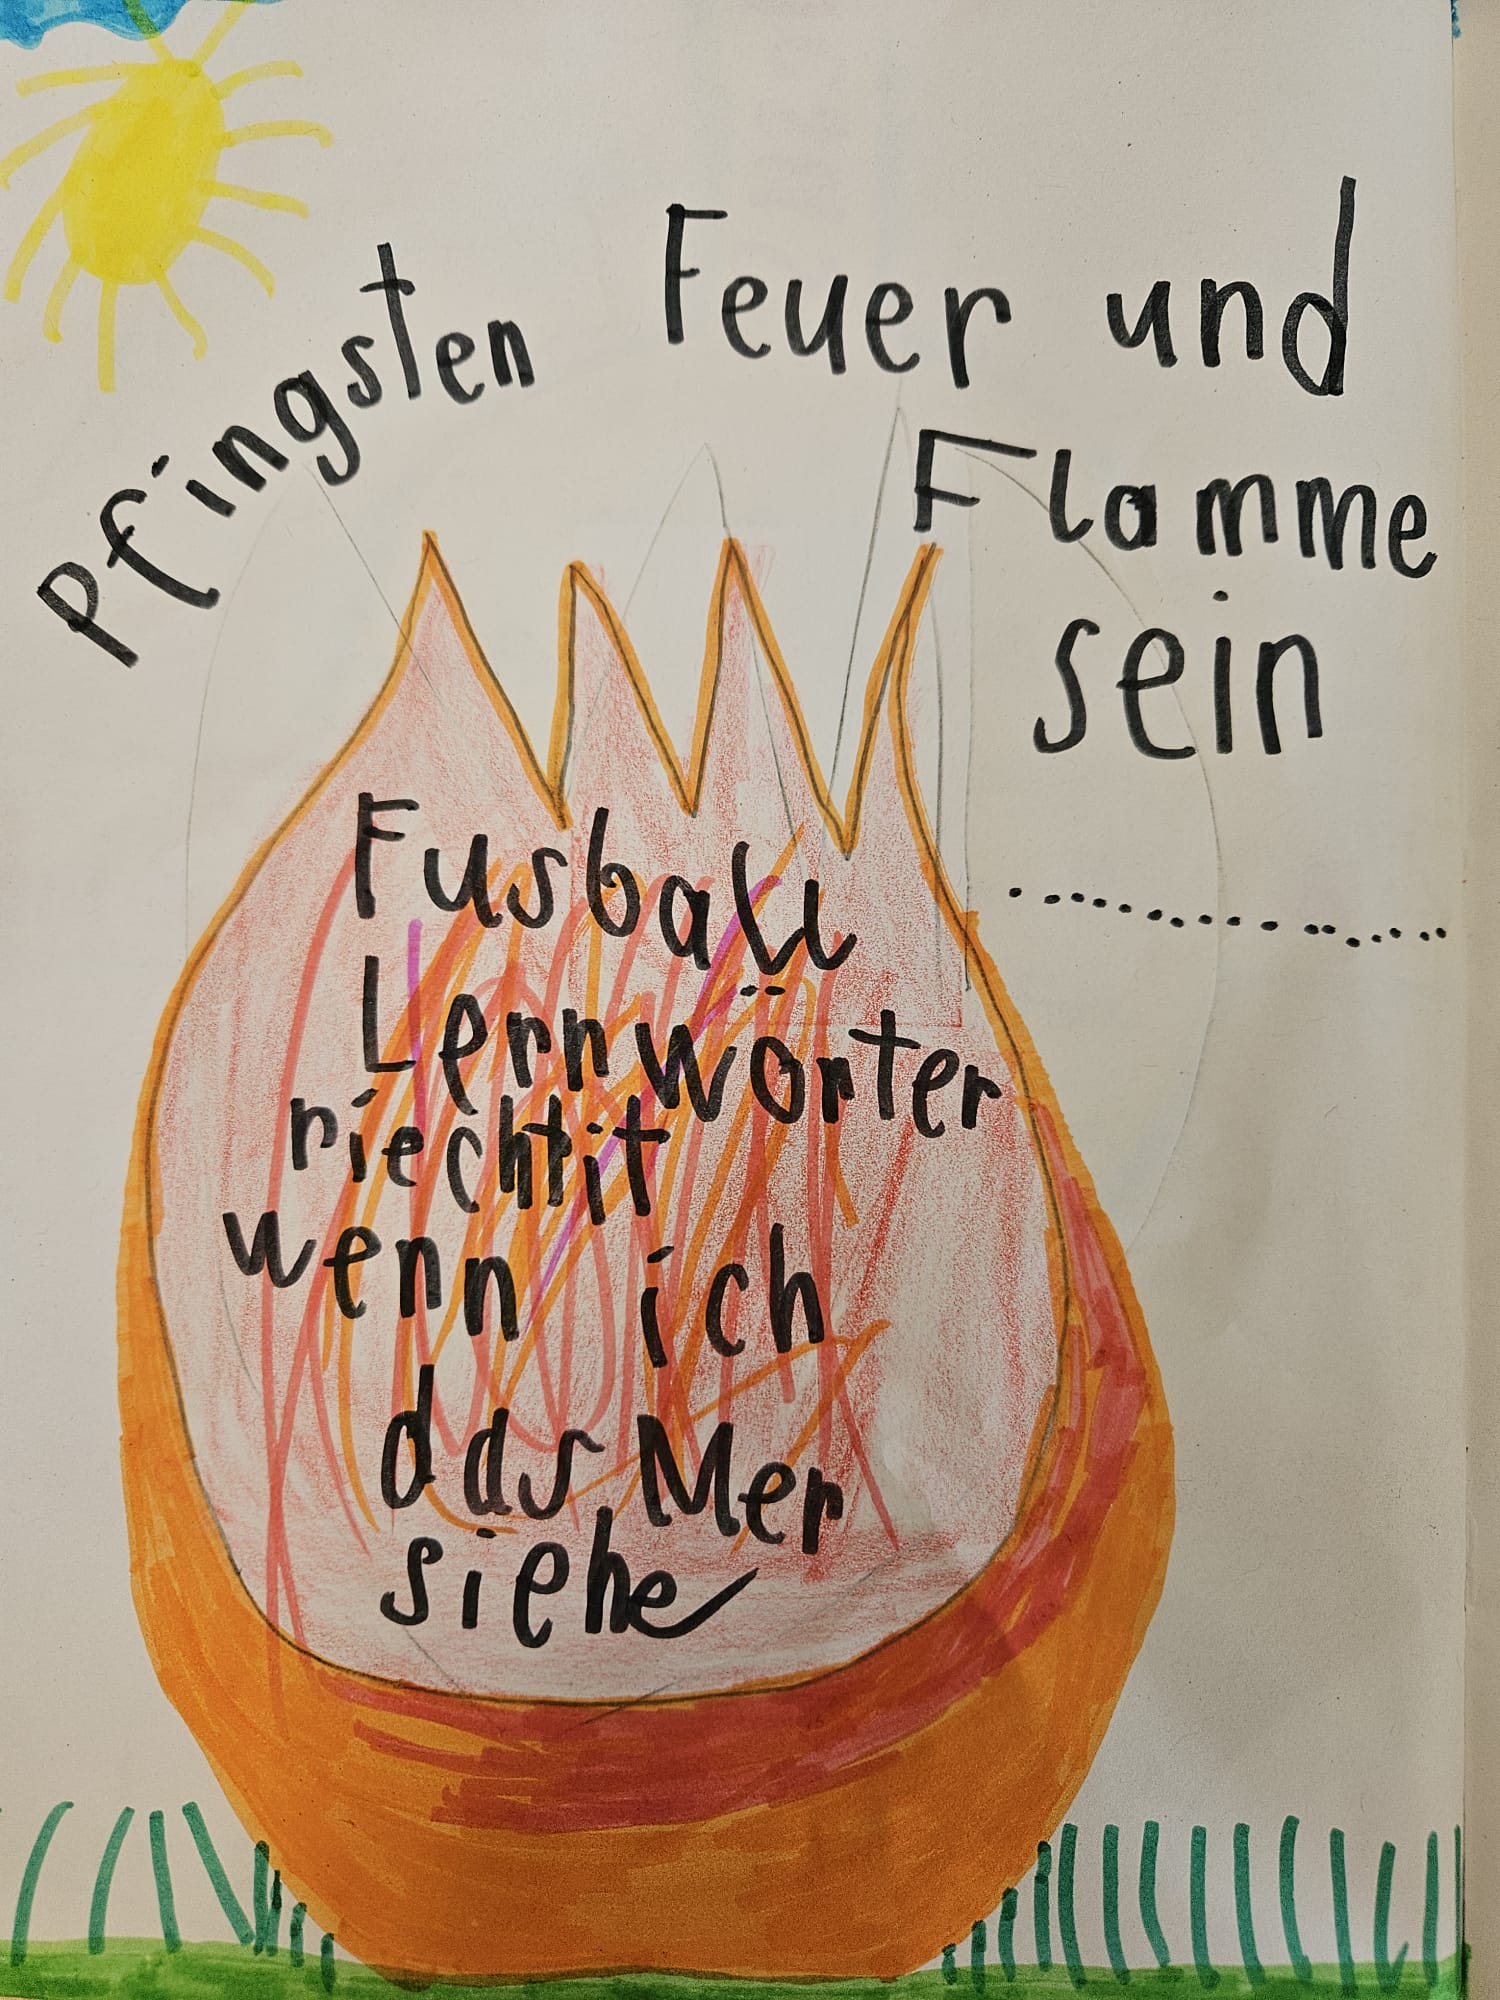 Pfingsten
Feuer und
Flamme
sein
....................
Fusball
Lernwörter
riechtit
wenn ich
das Mer
siehe